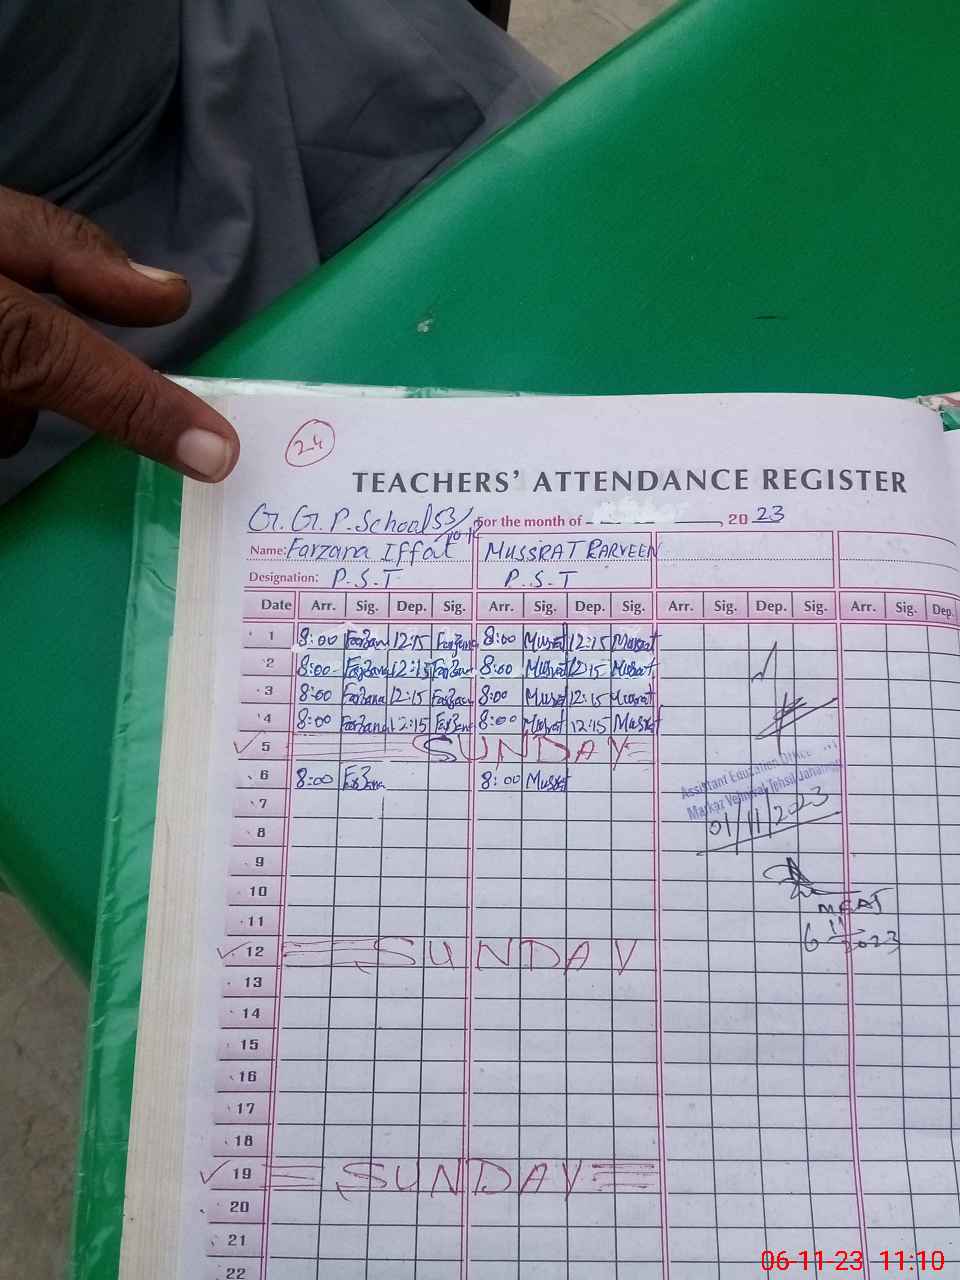 24
TEACHERS' ATTENDANCE REGISTER
G.G.P. School 53/10-R For the month of 2023
Name: Farzana Iffat MUSSRAT PARVEEN
Designation: P.S.T P.S.T
Date Arr. Sig. Dep. Sig. Arr. Sig. Dep. Sig. Arr. Sig. Dep. Sig. Arr. Sig. Dep.
1 8:00 Farzana 12:15 Farzana 8:00 Mussrat 12:15 Mussrat
2 8:00 Farzana 12:15 Farzana 8:00 Mussrat 12:15 Mussrat
3 8:00 Farzana 12:15 Farzana 8:00 Mussrat 12:15 Mussrat
4 8:00 Farzana 12:15 Farzana 8:00 Mussrat 12:15 Mussrat
5 SUNDAY
6 8:00 Farzana 8:00 Mussrat
Assistant Education Officer
Markaz Tehsil
01/11/2023
7
8
9
10
MEAS
11
6 11 2023
12 SUNDAY
13
14
15
16
17
18
19 SUNDAY
20
21
22
06-11-23 11:10